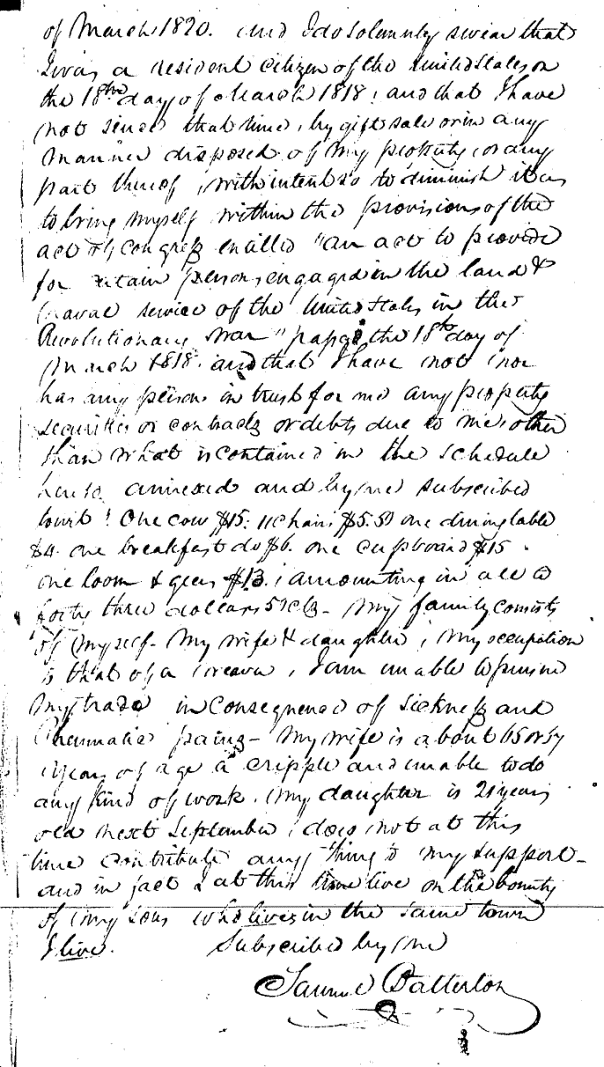 of March 1820. and I do solemnly swear that
I was a resident citizen of the United States on
the 18th day of March 1818, and that I have
not since that time, by gift sale or in any
manner disposed of my property, or any
part thereof, with intent so to diminish it as
to bring myself within the provisions of the
act of Congress entitled "an act to provide
for certain persons engaged in the land &
naval service of the United States in the
Revolutionary War" passed the 18th day of
March 1818. and that I have not nor
has any person in trust for me any property
securities or contracts or debts due to me other
than what is contained in the schedule
hereto annexed and by me subscribed
towit! One cow $15: 11 chairs $5.50 one dining table
$4. one breakfast do $6. one cupboard $15.
one loom & gears $13. amounting in all to
forty three dollars 50 cts - My family consists
of myself - My wife & daughter, My occupation
is that of a weaver, I am unable to pursue
my trade in consequence of sickness and
Rheumatic pains - My wife is about 65 or
years of age a cripple and unable to do
any kind of work. My daughter is 21 years
old next September, does not at this
time contribute any thing to my support -
and in fact I at this time live on the bounty
of my sons who lives in the same town
I live. Subscribed by me
Samuel Patterson